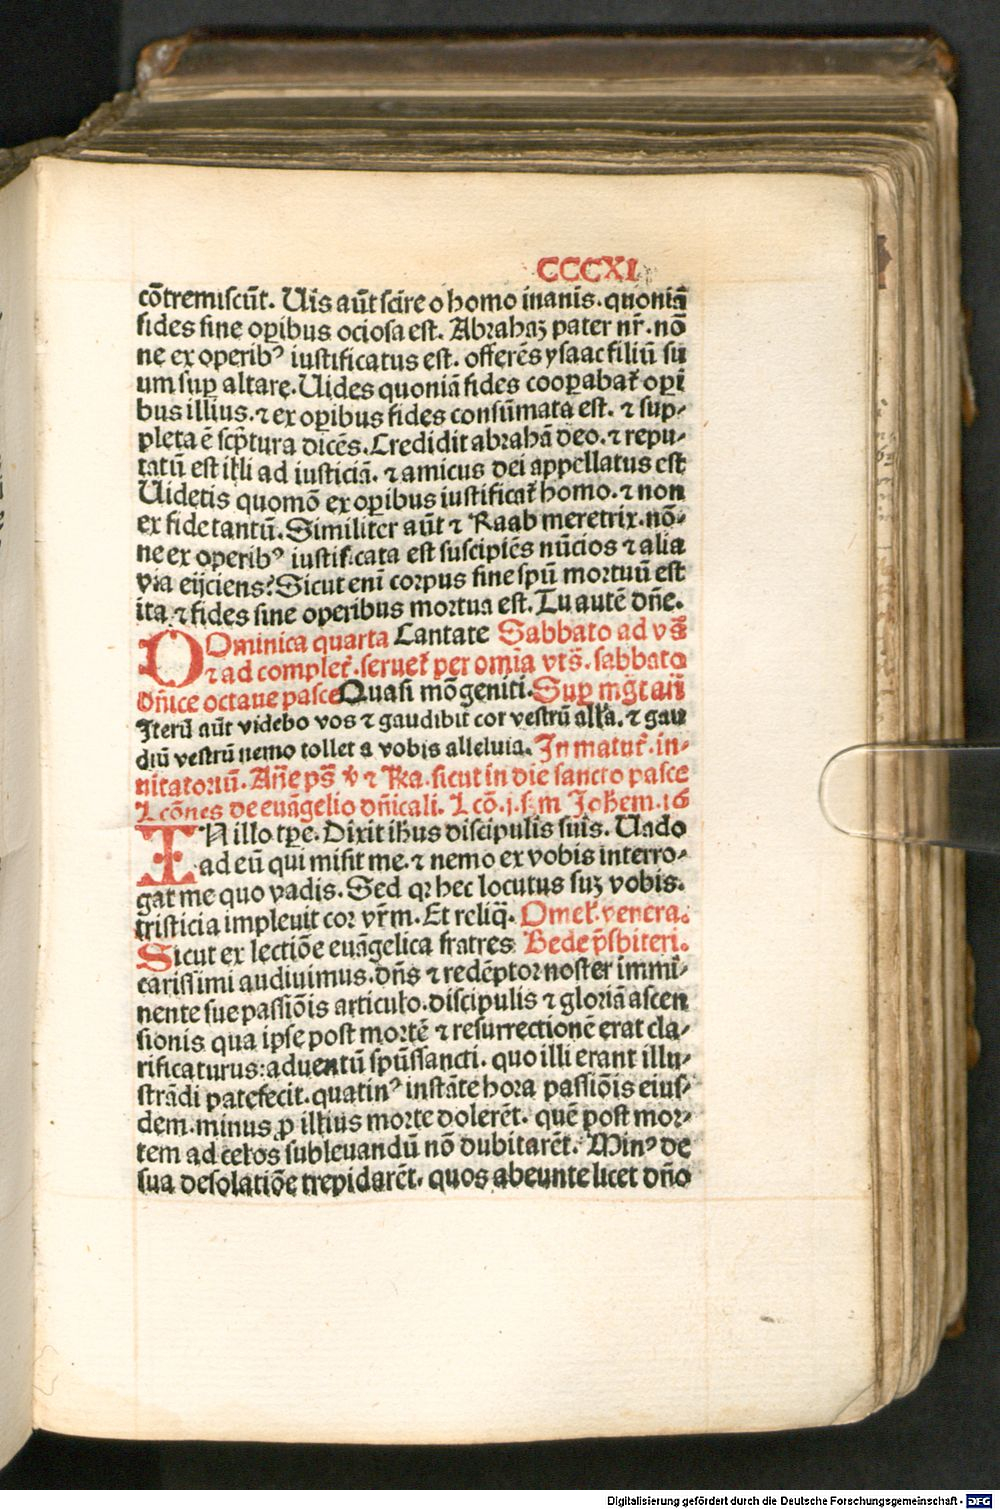 CCCXI
cōtremiscūt. Uis aūt scire o homo inanis. quoniā
fides sine oꝑibus ociosa est. Abrahaꝫ pater nr̄. nō
ne ex operibꝰ iustificatus est. offerēs ysaac filiū su
um suꝑ altare. Uides quoniā fides cooꝑabat᷑ oꝑi
bus illius. ⁊ ex oꝑibus fides consūmata est. ⁊ sup-
pleta ē scp̄tura dicēs. Credidit abrahā deo. ⁊ repu-
tatū est illi ad iusticiā. ⁊ amicus dei appellatus est
Uidetis quomō ex oꝑibus iustificat᷑ homo. ⁊ non
ex fide tantū. Similiter aūt ⁊ Raab meretrix. nō-
ne ex operibꝰ iustificata est suscipiēs nūcios ⁊ alia
via eijciens? Sicut eni corpus sine spū mortuū est
ita ⁊ fides sine operibus mortua est. Tu autē dn̄e.
DOminica quarta Cantate Sabbato ad vs̄
⁊ ad complet᷑. seruet᷑ per omīa vts̄. sabbato
dn̄ice octaue pasce Quasi mōgeniti. Suꝑ mḡt an̄
Iterū aūt videbo vos ⁊ gaudibit cor vestrū alla. ⁊ gau
diū vestrū nemo tollet a vobis alleluia. In matut᷑. in-
uitatoriū. An̄e ps̄ v̄ ⁊ R̄a. sicut in die sancto pasce
Lcōnes de euāgelio dn̄icali. Lcō. j. s. m Johem. 16
IN illo tꝑe. Dixit ihus discipulis suis. Uado
ad eū qui misit me. ⁊ nemo ex vobis interro-
gat me quo vadis. Sed qꝛ hec locutus suꝫ vobis.
tristicia impleuit cor vr̄m. Et reliq̄. Omel᷑. venera.
Sicut ex lectiōe euāgelica fratres Bede p̄sbiteri.
carissimi audiuimus. dn̄s ⁊ redēptor noster immi-
nente sue passiōis articulo. discipulis ⁊ gloriā ascen
sionis qua ipse post mortē ⁊ resurrectionē erat cla-
rificaturus: aduentū spūssancti. quo illi erant illu-
strādi patefecit. quatinꝰ instāte hora passiōis eius-
dem. minus ꝓ illius morte dolerēt. quē post mor-
tem ad celos subleuandū nō dubitarēt. Minꝰ de
sua desolatiōe trepidarēt. quos abeunte licet dn̄o
Digitalisierung gefördert durch die Deutsche Forschungsgemeinschaft - DFG